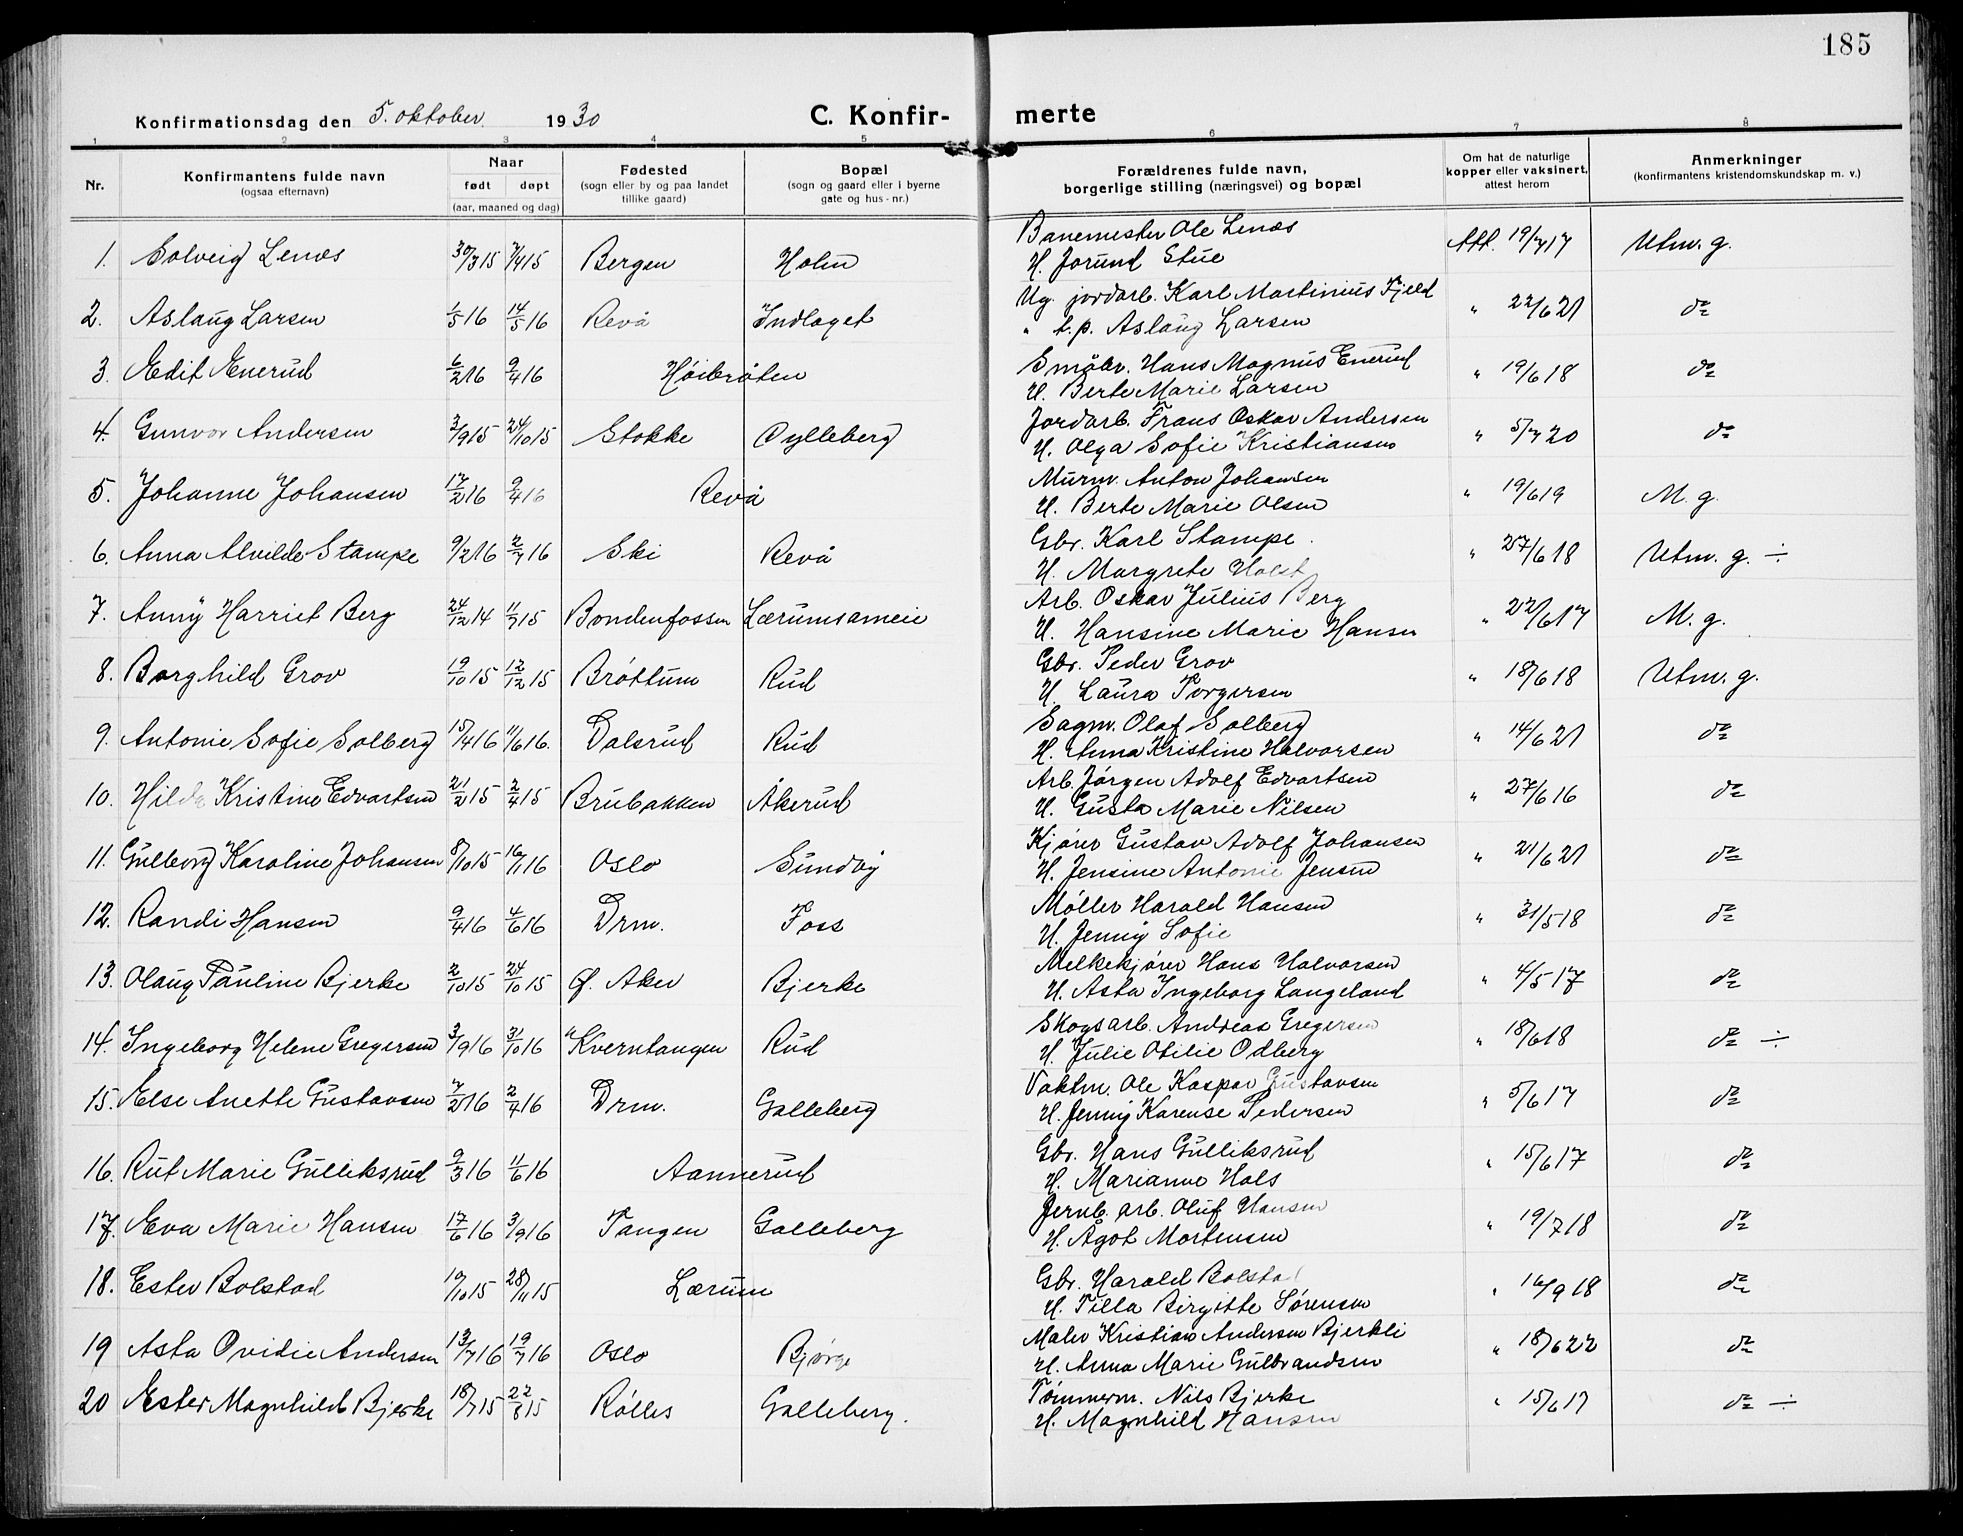 185
Konfirmationsdag den 5. oktober 1930 C. Konfirmerte
1 2 3 4 5 6 7 8
Nr. Konfirmantens fulde navn (ogsaa efternavn) Naar født døpt (aar, maaned og dag) Fødested (sogn eller by og paa landet tillike gaard) Bopæl (sogn og gaard eller i byerne gate og hus-nr.) Forældrenes fulde navn, borgerlige stilling (næringsvei) og bopæl Om hat de naturlige kopper eller vaksinert, attest herom Anmerkninger (konfirmantens kristendomskundskap m. v.)
1. Solveig Lenæs 30/3 15 7/4 15 Bergen Holm Banemester Ole Lenæs Att. 19/7 17 Utm. g.
H. Jorund Stue
2. Aslaug Larsen 1/5 16 14/5 16 Revå Indlaget Ug. jordarb. Karl Martinius Fjeld " 22/6 21 do
" t.p. Aslaug Larsen
3. Edit Enerud 6/2 16 9/4 16 Höibråten Småbr. Hans Magnus Enerud " 19/6 18 do
H. Berte Marie Larsen
4. Gunvor Andersen 3/9 15 24/10 15 Stokke Gylleberg Jordarb. Frans Oskar Andersen " 5/7 20 do
H. Olga Sofie Kristiansen
5. Johanne Johansen 17/2 16 9/4 16 Revå Murm. Anton Johansen " 19/6 19 M. g.
H. Berte Marie Olsen
6. Anna Alvilde Stampe 9/2 16 2/7 16 Ski Revå Gbr. Karl Stampe. " 27/6 18 Utm. g. ÷
H. Margrete Holst
7. Anny Harriet Berg 24/12 14 11/7 15 Bondenfossen Lærumsameie Arb. Oskar Julius Berg " 22/6 17 M. g.
H. Hansine Marie Hansen
8. Borghild Grov 19/10 15 12/12 15 Bröttum Rud Gbr. Peder Grov " 18/6 18 Utm. g.
H. Laura Torgersen
9. Antonie Sofie Solberg 15/4 16 11/6 16. Dalsrud Rud Sagm. Olaf Solberg " 14/6 21 do
H. Anna Kristine Halvorsen
10. Hilda Kristine Edvartsen 21/2 15 2/4 15 Brubakken Åkerud Arb. Jörgen Adolf Edvartsen " 27/6 16 do
H. Gusta Marie Nilsen
11. Gulborg Karoline Johansen 8/10 15 16/1 16 Oslo Sundby Kjörer Gustav Adolf Johansen " 21/6 21 do
H. Jensine Antonie Jensen
12. Randi Hansen 9/4 16 4/6 16 Drm. Foss Møller Harald Hansen " 31/5 18 do
H. Jenny Sofie
13. Olaug Pauline Bjerke 2/10 15 24/10 15 Ø. Aker Bjerke Melkekjörer Hans Halvorsen " 4/5 17 do
H. Asta Ingeborg Langeland
14. Ingeborg Helene Gregersen 3/9 16 31/10 16 "Kverntangen Rud Skogsarb. Andreas Gregersen " 18/6 18 do ÷
H. Julie Otilie Odberg
15. Else Anette Gustavsen 7/2 16 2/4 16 Drm. Galleberg Vaktm. Ole Kaspar Gustavsen " 5/6 17 do
H. Jenny Karense Pedersen
16. Rut Marie Gulliksrud 9/3 16 11/6 16 Aannerud Gbr. Hans Gulliksrud " 15/6 17 do
H. Marianne Hals
17. Eva Marie Hansen 17/6 16 3/9 16 Tangen Galleberg Jernb. arb. Oluf Hansen " 19/7 18 do
H. Ågot Mortensen
18. Ester Bolstad 19/10 15 28/11 15 Lærum Gbr. Harald Bolstad " 16/9 18 do
H. Tilla Birgitte Sørensen
19 Asta Ovidie Andersen 13/7 16 19/7 16 Oslo Bjørge Maler Kristian Andersen Bjerkli " 18/6 22 do
H. Anna Marie Gulbrandsen
20 Ester Magnhild Bjerke 18/7 15 22/8 15 Rålles Galleberg. Tömmerm. Nils Bjerke " 15/6 17 do ÷
H. Magnhild Hansen